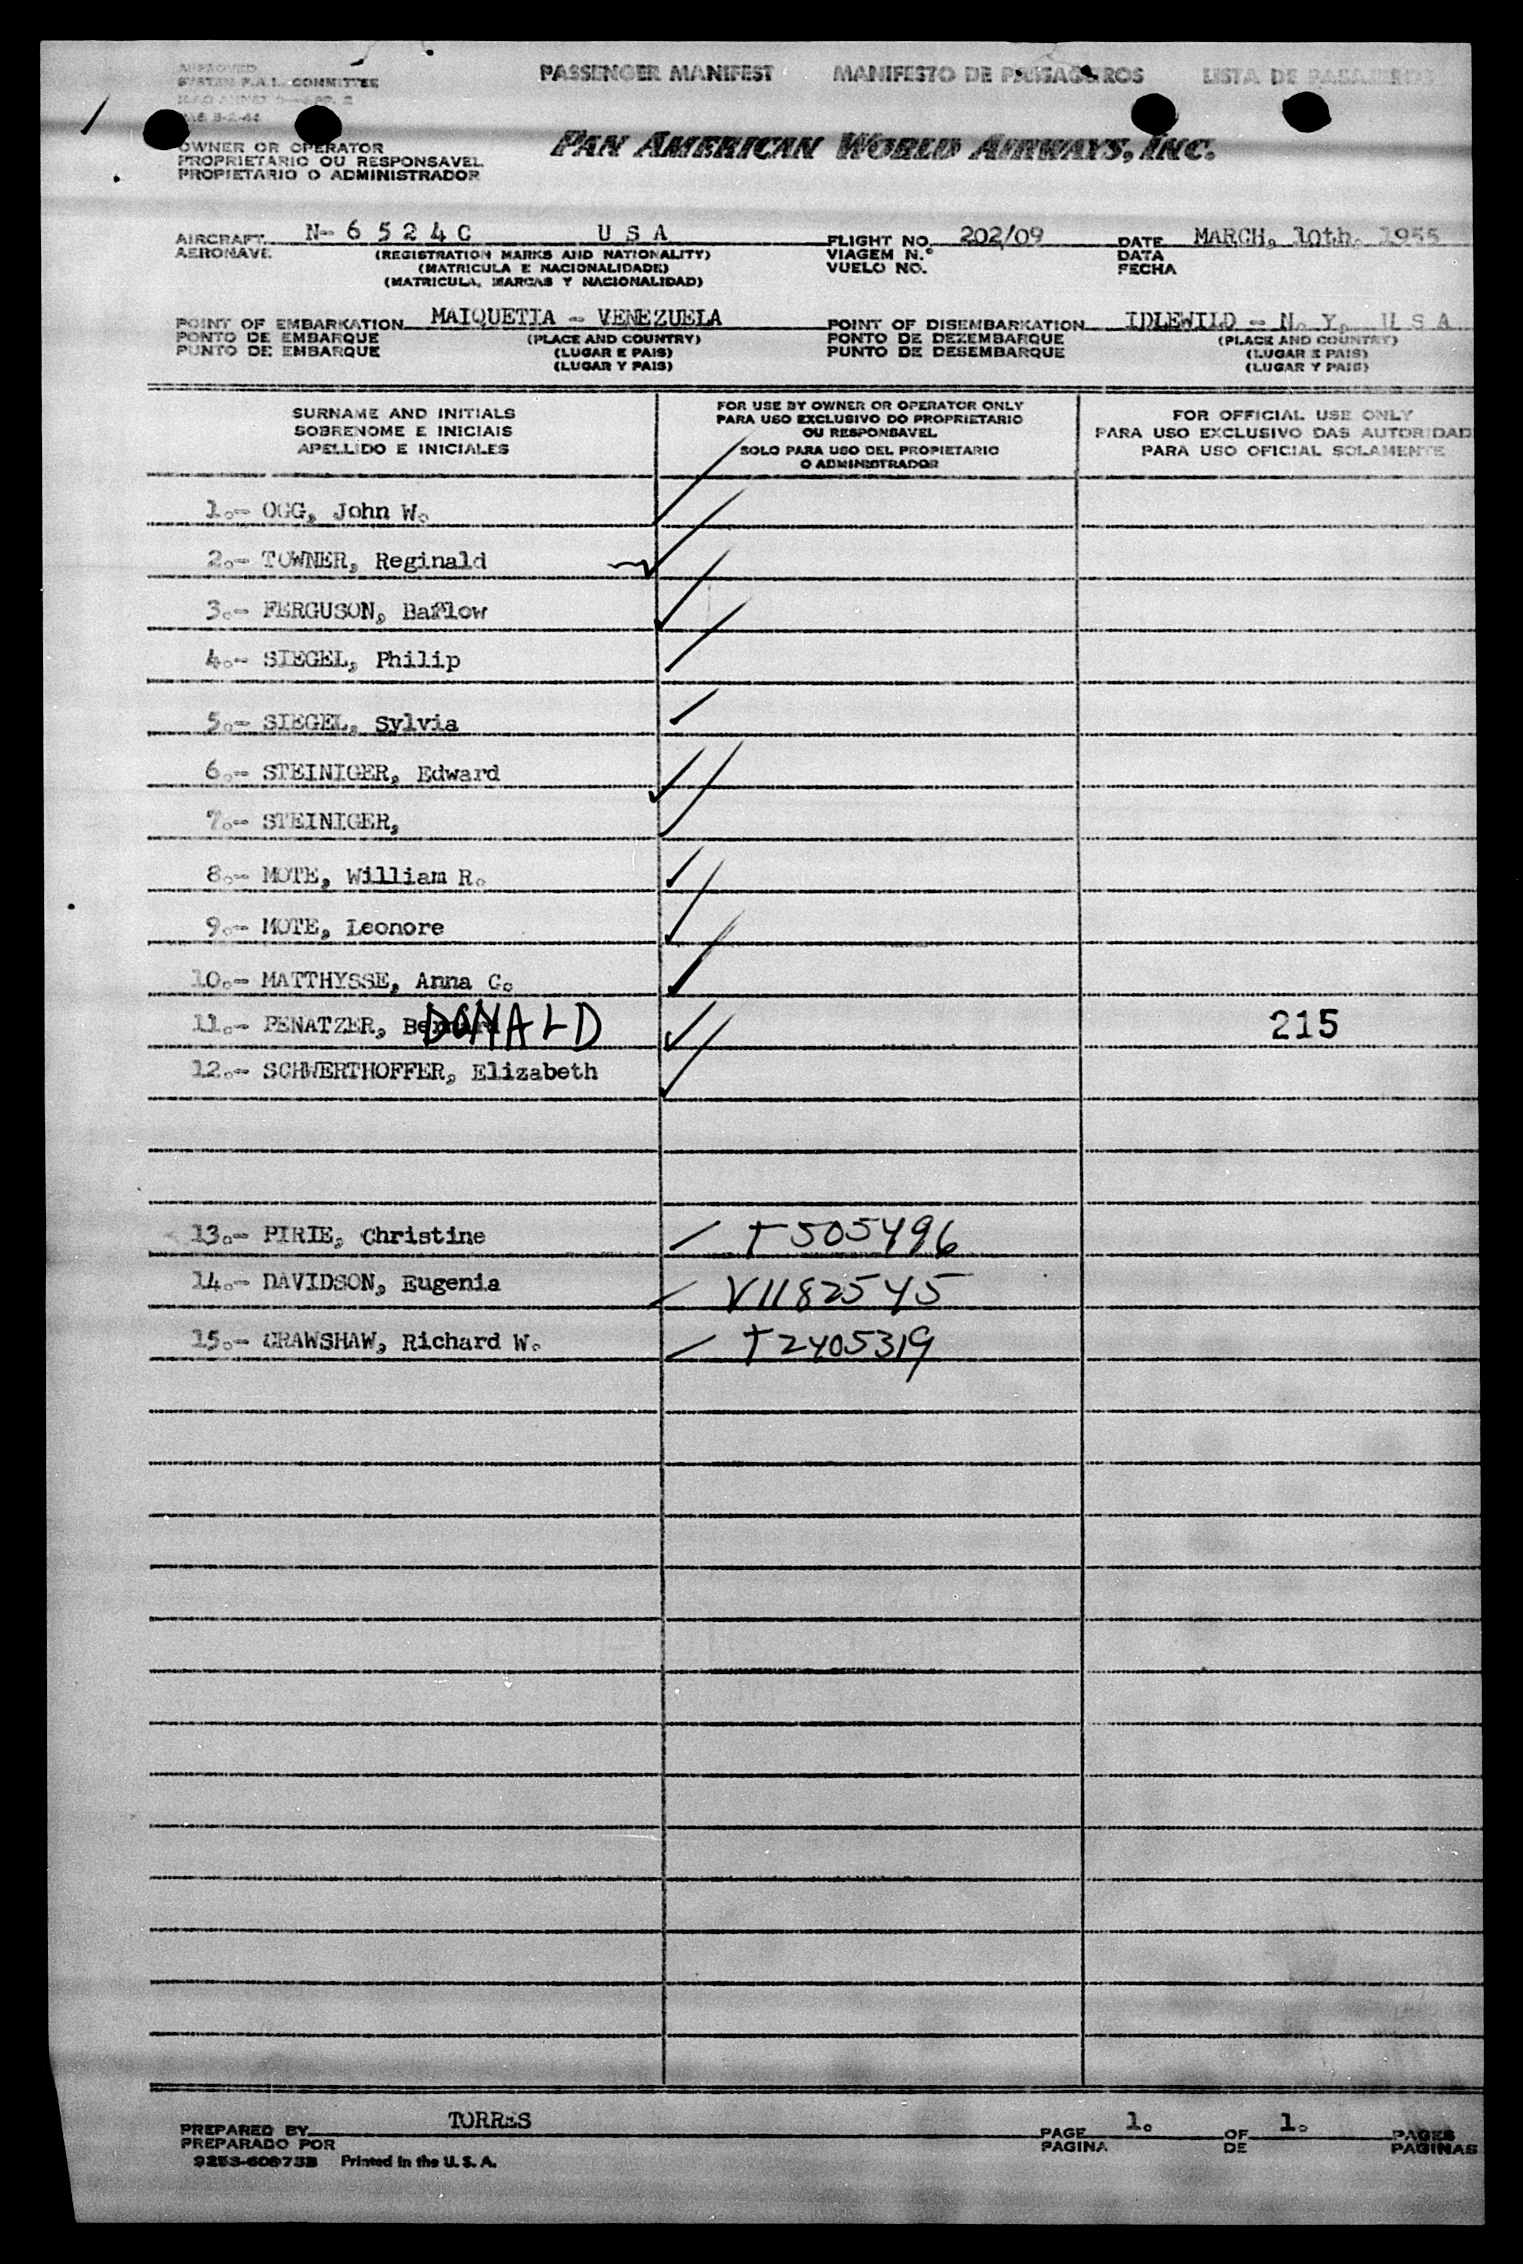 APPROVED
SYSTEM F.A.L. COMMITTEE
PASSENGER MANIFEST MANIFESTO DE PASSAGEIROS LISTA DE PASAJEROS
OWNER OR OPERATOR
PROPRIETARIO OU RESPONSAVEL
PROPIETARIO O ADMINISTRADOR
PAN AMERICAN WORLD AIRWAYS, INC.
AIRCRAFT N- 6 5 2 4 C U S A FLIGHT NO. 202/09 DATE MARCH, 10th. 1955
AERONAVE (REGISTRATION MARKS AND NATIONALITY) VIAGEM N.° DATA
(MATRICULA E NACIONALIDADE) VUELO NO. FECHA
(MATRICULA, MARCAS Y NACIONALIDAD)
POINT OF EMBARKATION MAIQUETIA - VENEZUELA POINT OF DISEMBARKATION IDLEWILD - N. Y, U S A
PONTO DE EMBARQUE (PLACE AND COUNTRY) PONTO DE DEZEMBARQUE (PLACE AND COUNTRY)
PUNTO DE EMBARQUE (LUGAR E PAIS) PUNTO DE DESEMBARQUE (LUGAR E PAIS)
(LUGAR Y PAIS) (LUGAR Y PAIS)
SURNAME AND INITIALS
SOBRENOME E INICIAIS
APELLIDO E INICIALES
FOR USE BY OWNER OR OPERATOR ONLY
PARA USO EXCLUSIVO DO PROPRIETARIO
OU RESPONSAVEL
SOLO PARA USO DEL PROPIETARIO
O ADMINISTRADOR
FOR OFFICIAL USE ONLY
PARA USO EXCLUSIVO DAS AUTORIDAD
PARA USO OFICIAL SOLAMENTE
1.- OGG, John W.
2.- TOWNER, Reginald
3.- FERGUSON, Barlow
4.- SIEGEL, Philip
5.- SIEGEL, Sylvia
6.- STEINIGER, Edward
7.- STEINIGER,
8.- MOTE, William R.
9.- MOTE, Leonore
10.- MATTHYSSE, Anna C.
11.- PENATZER, DONALD 215
12.- SCHWERTHOFFER, Elizabeth
13.- PIRIE, Christine T 505496
14.- DAVIDSON, Eugenia V1182545
15.- CRAWSHAW, Richard W. T2405319
PREPARED BY TORRES PAGE 1. OF 1. PAGES
PREPARADO POR PAGINA DE PAGINAS
Printed in the U. S. A.